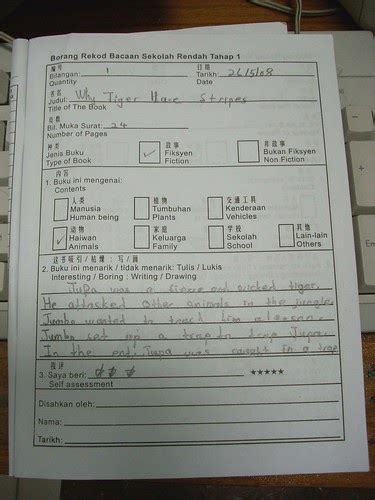 Borang Rekod Bacaan Sekolah Rendah Tahap 1
编号
Bilangan: 1
Quantity
日期
Tarikh: 26/5/08
Date
书名
Judul: Why Tiger Have Stripes
Title of The Book
页数
Bil. Muka Surat: 24
Number of Pages
种类
Jenis Buku
Type of Book
故事
Fiksyen
Fiction
非故事
Bukan Fiksyen
Non Fiction
内容
1. Buku ini mengenai:
Contents
人类
Manusia
Human being
植物
Tumbuhan
Plants
交通工具
Kenderaan
Vehicles
动物
Haiwan
Animals
家庭
Keluarga
Family
学校
Sekolah
School
其他
Lain-lain
Others
这书吸引/枯燥：写/画
2. Buku ini menarik / tidak menarik: Tulis / Lukis
Interesting / Boring : Writing / Drawing
Jupa was a fierce and wicked tiger.
He attacked other animals in the jungle.
Jumbo wanted to teach him a lesson.
Jumbo set up a trap to trap Jupa.
In the end, Jupa was caught in a trap
我评
3. Saya beri:
★★★★★
Self assessment
Disahkan oleh:
Nama:
Tarikh: